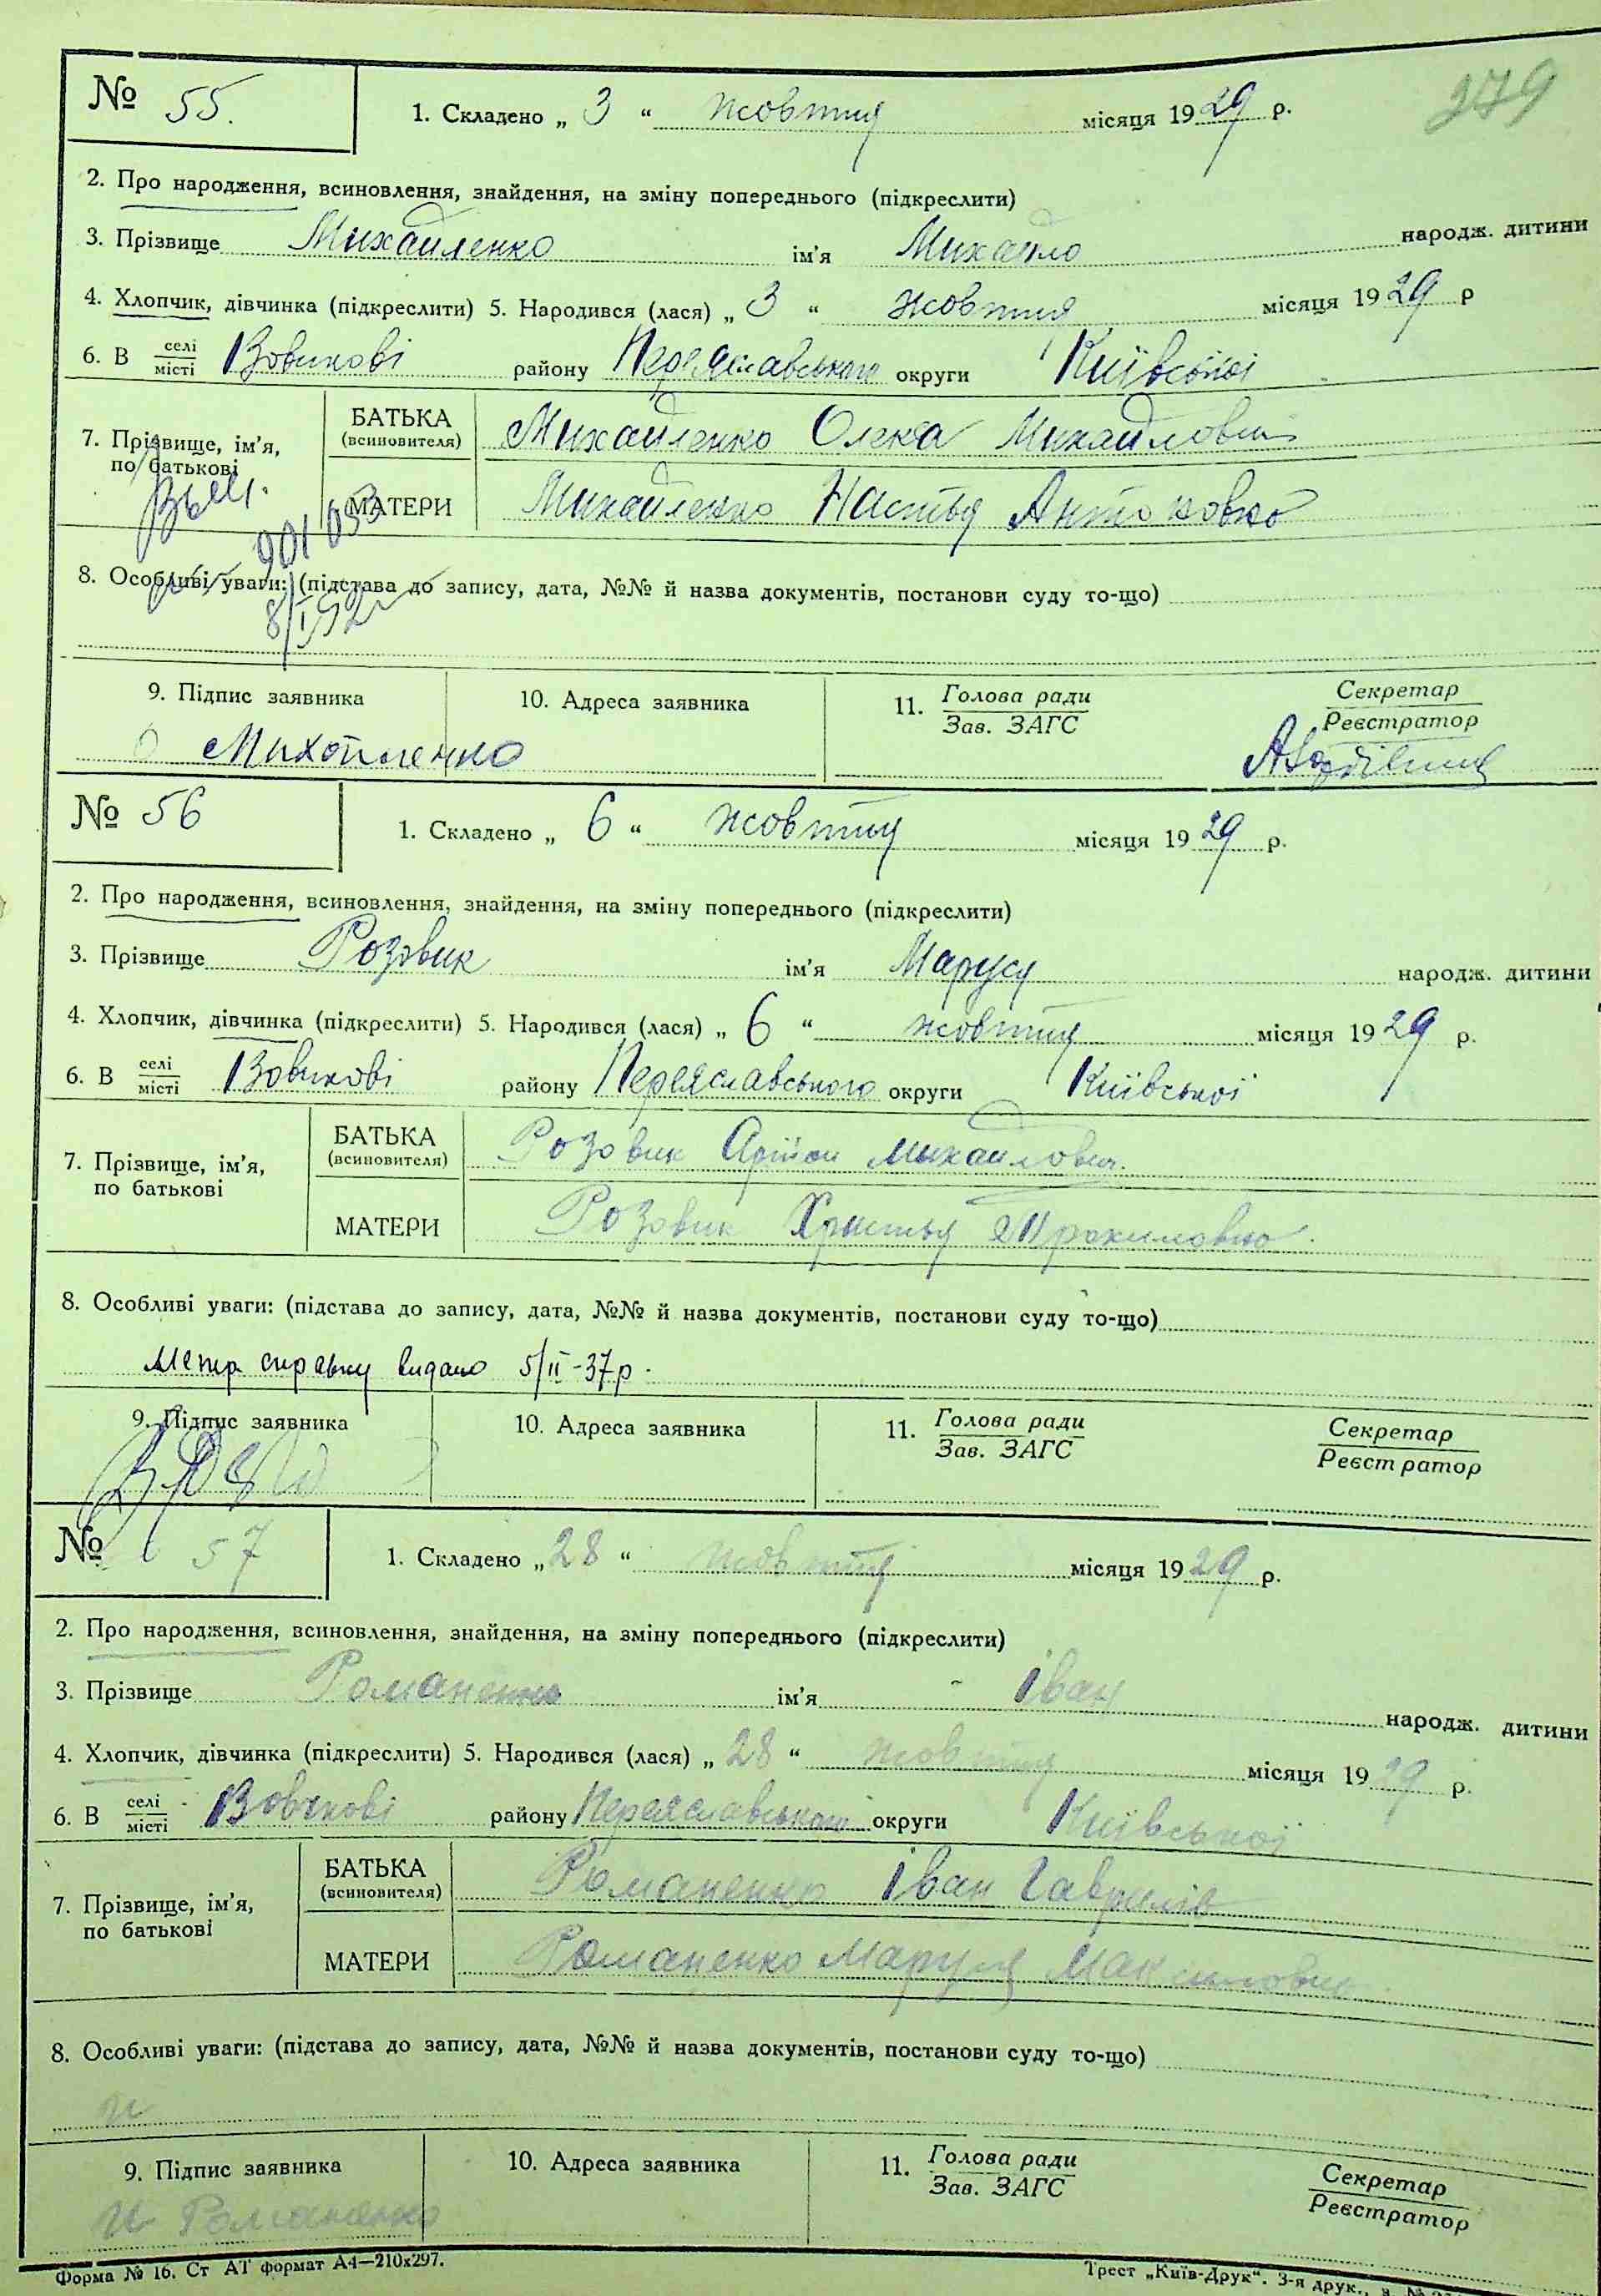 279
№ 55. 1. Складено „ 3 “ жовтня місяця 1929 р.
2. Про народження, всиновлення, знайдення, на зміну попереднього (підкреслити)
3. Прізвище Михайленко ім’я Михайло народж. дитини
4. Хлопчик, дівчинка (підкреслити) 5. Народився (лася) „ 3 “ жовтня місяця 1929 р
6. В селі місті Вовчкові району Переяславського округи Київської
7. Прізвище, ім’я, по батькові
БАТЬКА (всиновителя) Михайленко Олекса Михайлович
МАТЕРИ Михайленко Настья Антоновно
8. Особливі уваги: (підстава до запису, дата, №№ й назва документів, постанови суду то-що)
9. Підпис заявника 10. Адреса заявника 11. Голова ради Зав. ЗАГС Секретар Реєстратор
Михайленко
№ 56 1. Складено „ 6 “ жовтня місяця 1929 р.
2. Про народження, всиновлення, знайдення, на зміну попереднього (підкреслити)
3. Прізвище Розовик ім’я Маруся народж. дитини
4. Хлопчик, дівчинка (підкреслити) 5. Народився (лася) „ 6 “ жовтня місяця 1929 р.
6. В селі місті Вовчкові району Переяславського округи Київської
7. Прізвище, ім’я, по батькові
БАТЬКА (всиновителя) Розовик Михайлович.
МАТЕРИ Розовик Христья
8. Особливі уваги: (підстава до запису, дата, №№ й назва документів, постанови суду то-що)
Метр справку видано 5/II-37р.
9. Підпис заявника 10. Адреса заявника 11. Голова ради Зав. ЗАГС Секретар Реєстратор
№ 57 1. Складено „ 28 “ жовтня місяця 1929 р.
2. Про народження, всиновлення, знайдення, на зміну попереднього (підкреслити)
3. Прізвище Романенко ім’я Іван народж. дитини
4. Хлопчик, дівчинка (підкреслити) 5. Народився (лася) „ 28 “ жовтня місяця 1929 р.
6. В селі місті Вовчкові району Переяславського округи Київської
7. Прізвище, ім’я, по батькові
БАТЬКА (всиновителя) Романенко Іван Гаврилів
МАТЕРИ Романенко Маруся Максимовно
8. Особливі уваги: (підстава до запису, дата, №№ й назва документів, постанови суду то-що)
9. Підпис заявника 10. Адреса заявника 11. Голова ради Зав. ЗАГС Секретар Реєстратор
Романенко
Форма № 16. Ст АТ формат А4—210х297. Трест „Київ-Друк“. 3-я друк.,